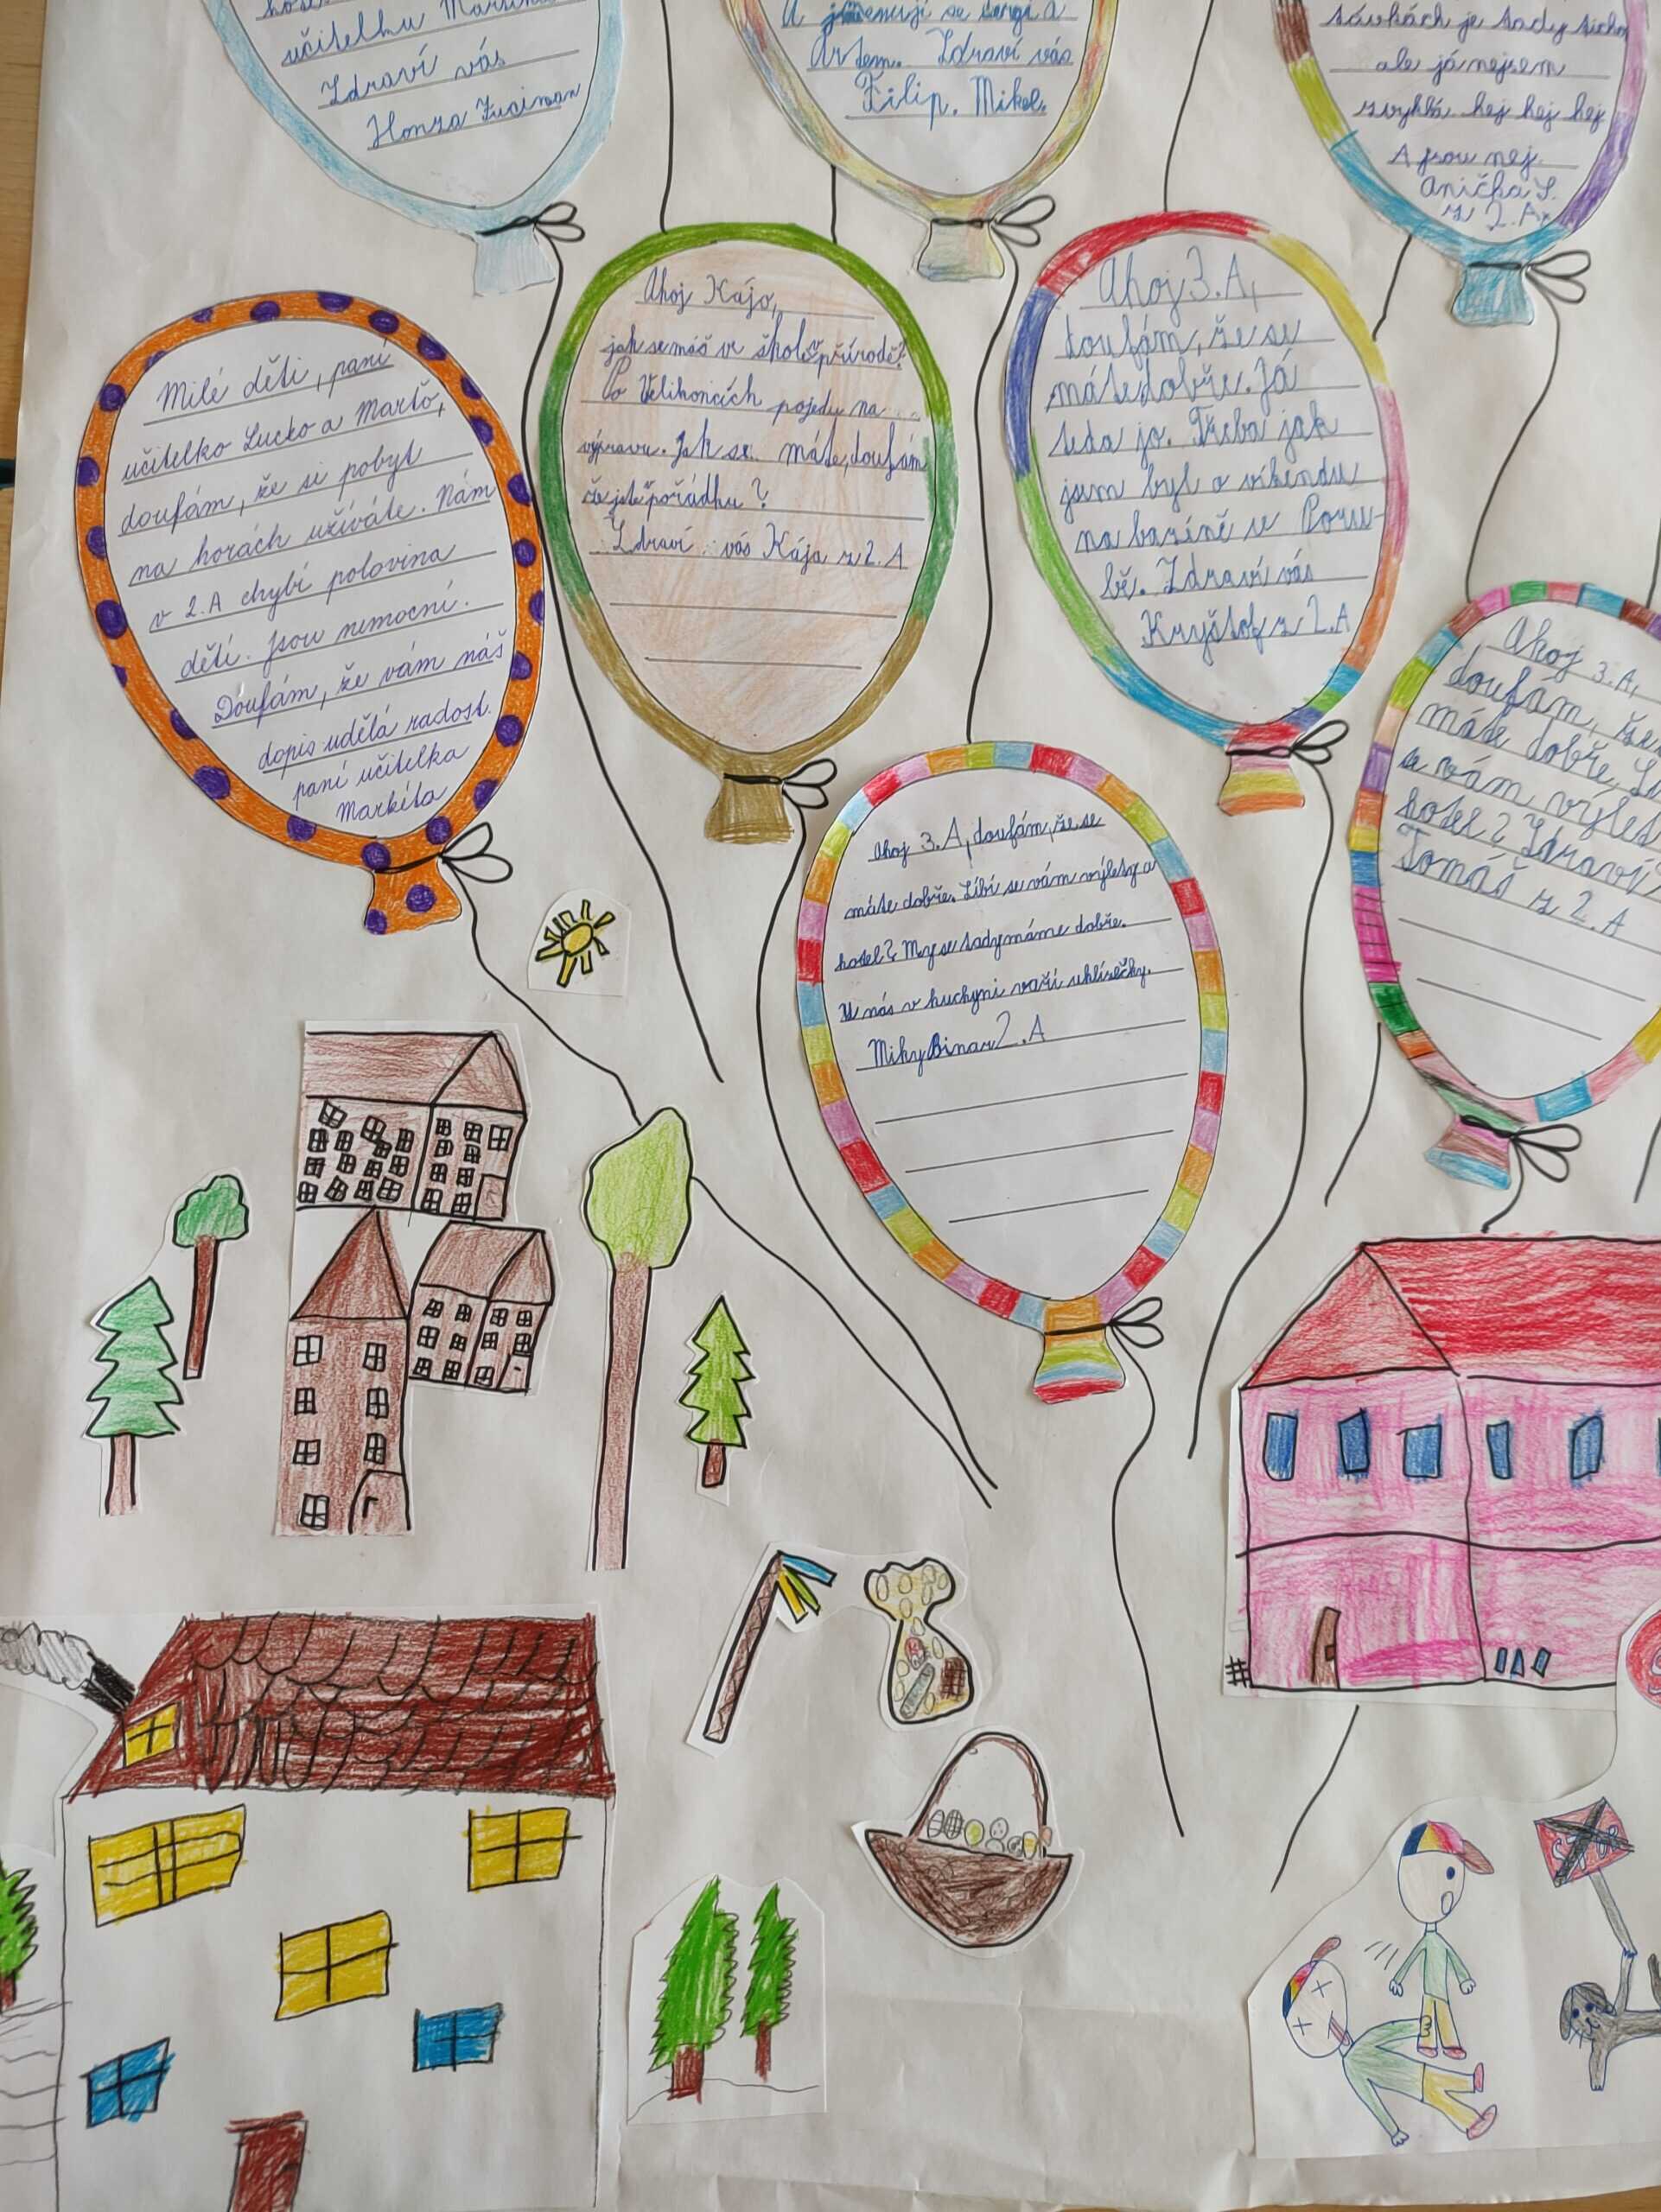 učitelku
Zdraví vás
Honza
A jmenují se
Artem. Zdraví vás
Filip. Mikol.
je tady ticho
ale já nejsem
zvyklá hej hej hej
A jsou nej.
Anička S.
z 2.A
Milé děti, paní
učitelko Lucko a Marťo,
doufám, že si pobyt
na horách užíváte. Nám
v 2.A chybí polovina
dětí. Jsou nemocní.
Doufám, že vám náš
dopis udělá radost.
paní učitelka
Markéta
Ahoj Kájo,
jak se máš ve škole v přírodě?
Po Velikonocích pojedu na
výpravu. Jak se máte, doufám
že jste v pořádku?
Zdraví vás Kája z 2.A
Ahoj 3.A,
doufám, že se
máte dobře. Já
teda jo. Třeba jak
jsem byl o víkendu
na bazéně v Poru-
bě. Zdraví vás
Kryštof z 2.A
Ahoj 3.A, doufám, že se
máte dobře. Líbí se vám výlety a
hotel? My se tady máme dobře.
U nás v kuchyni vaří
Miky Binar 2.A
Ahoj 3.A,
doufám, že
máte dobře.
se vám výlet
hotel? Zdraví
Tomáš z 2.A